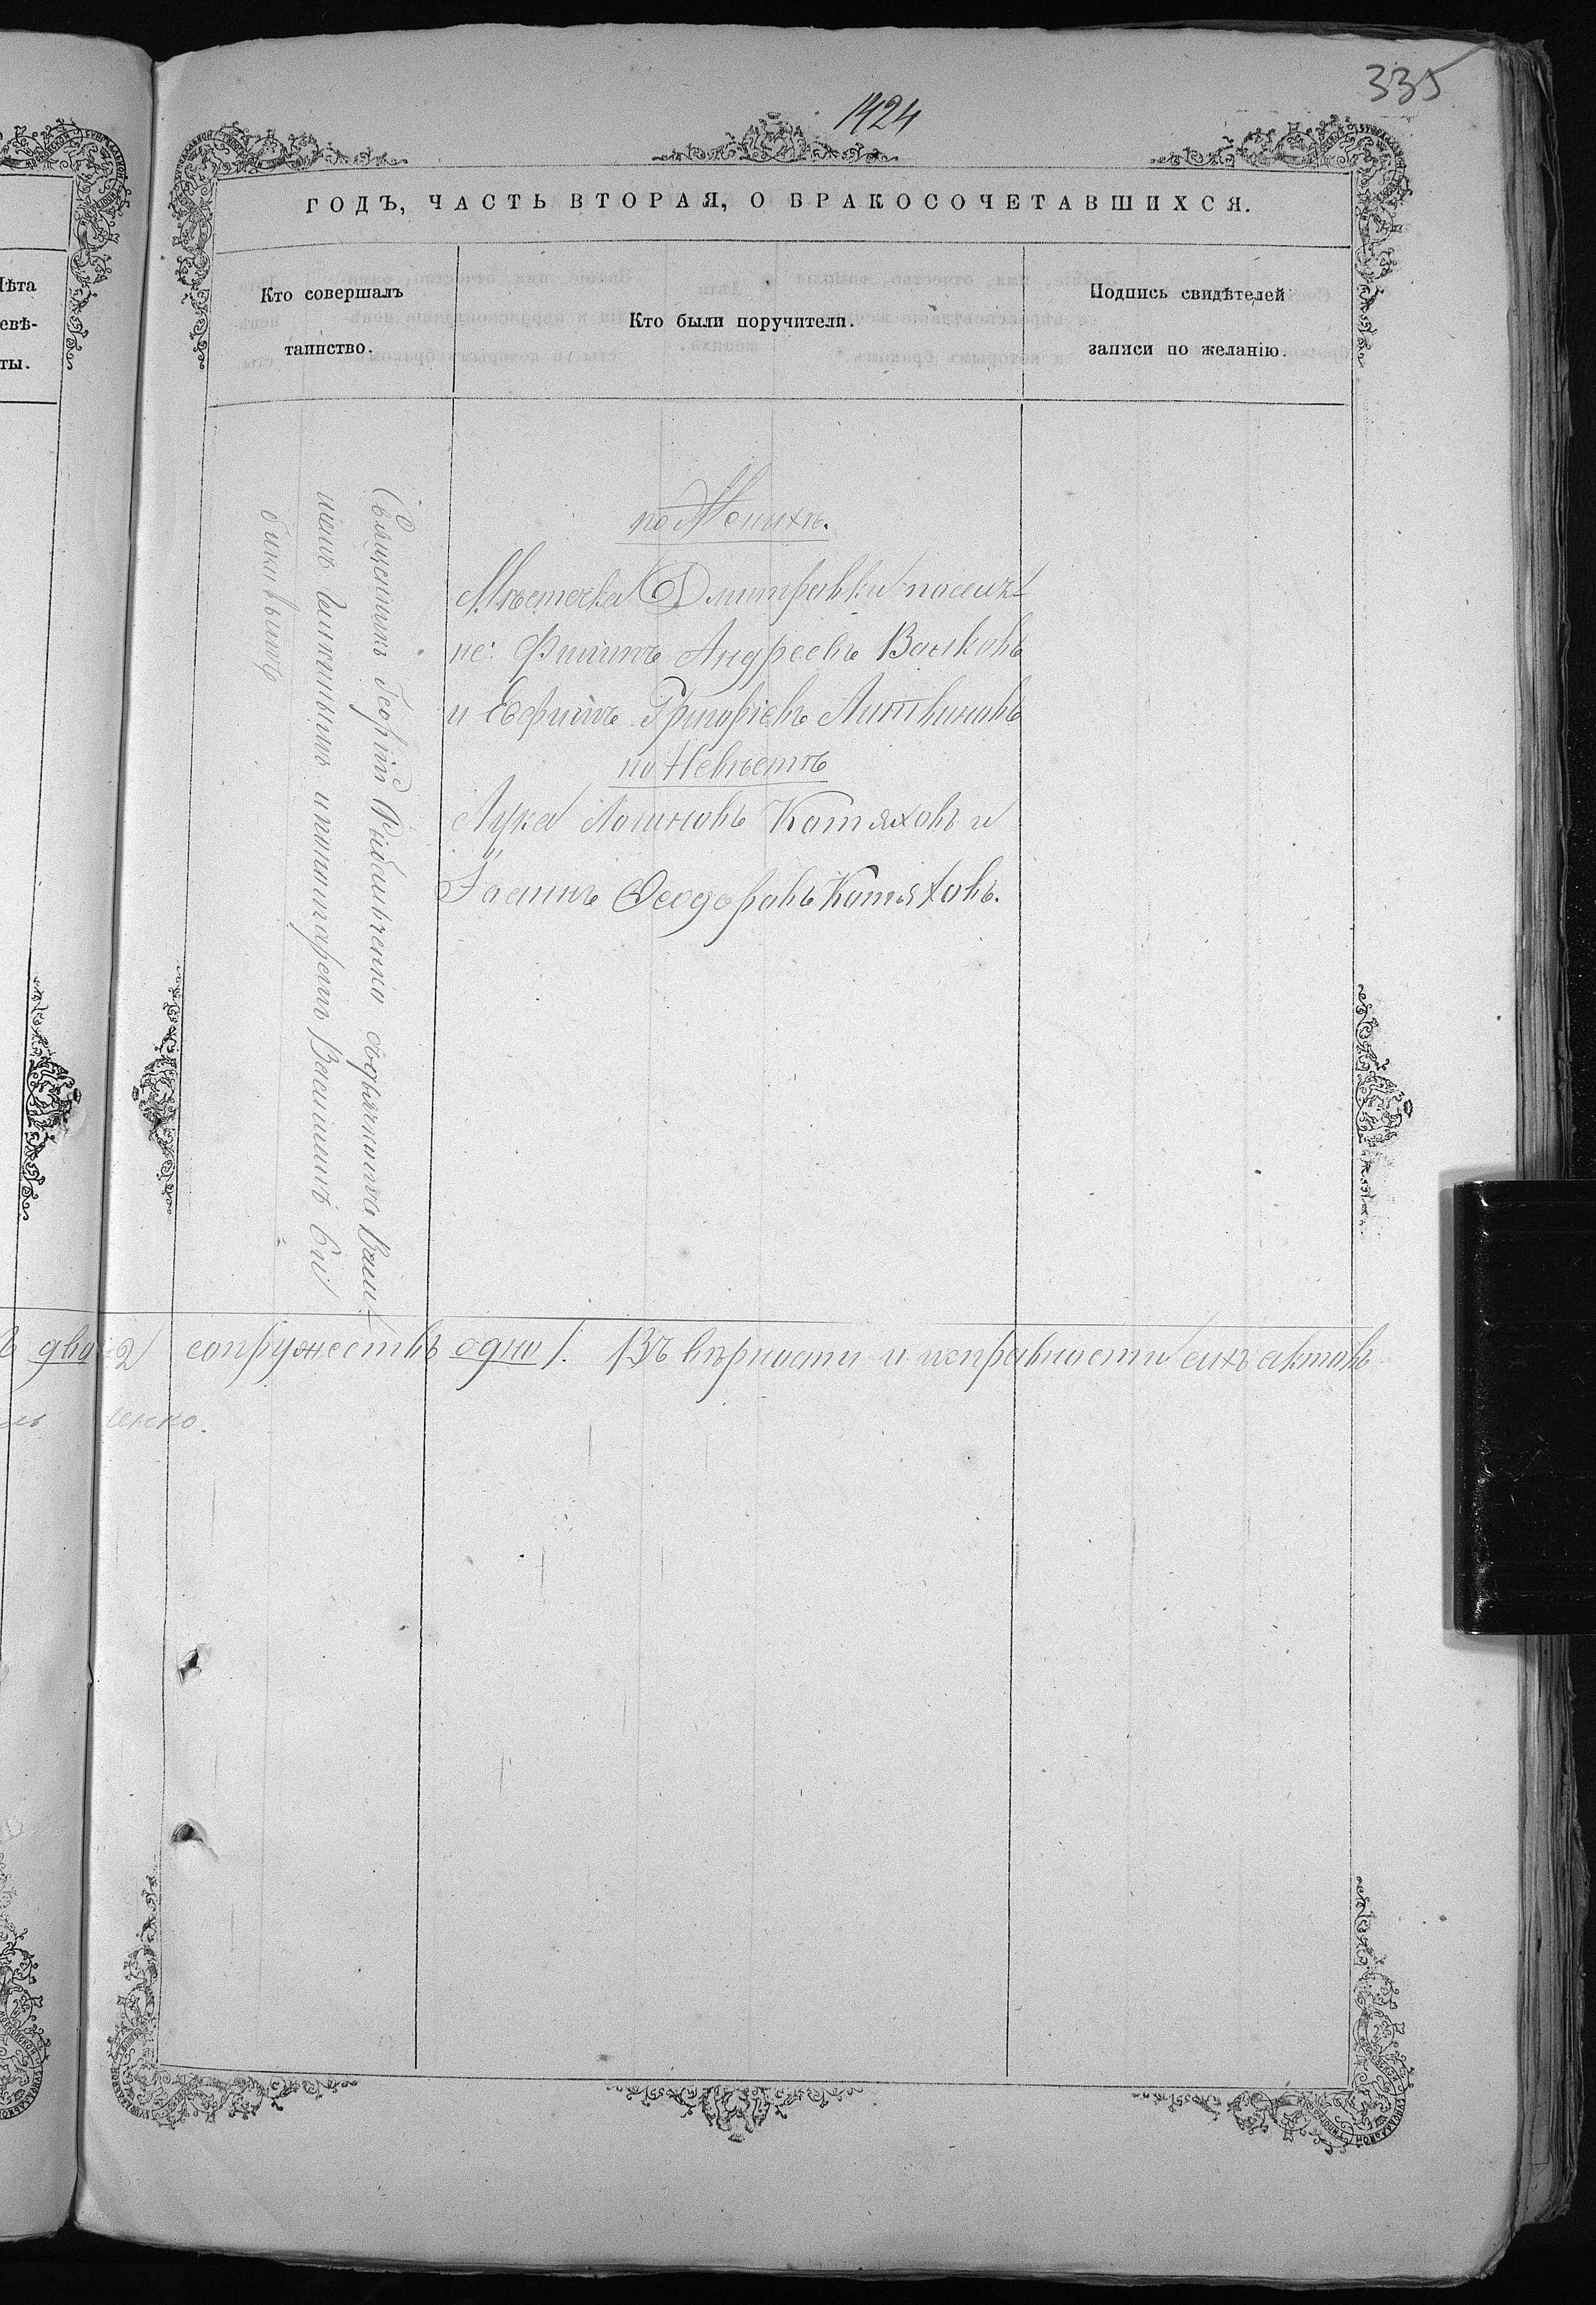 335
1424
ГОДЪ, ЧАСТЬ ВТОРАЯ, О БРАКОСОЧЕТАВШИХСЯ.
Кто совершалъ
таинство.
Кто были поручители.
Подпись свидѣтелей
записи по желанію.
Священникъ Георгій Рыбальченко съ дьячкомъ Васи
пономаремъ Василіемъ
по Женихѣ.
Мѣстечка Дмитровки поселя
не: Филипъ Андреевъ Волковъ
и Евфимъ Григоріевъ Литвиновъ
по Невѣстѣ
Лука Логиновъ Котяховъ и
Іоаннъ Ѳеодоровъ Котяховъ.
два 2 сопружествъ одно 1. Въ вѣрности и исправности сихъ актовъ
енко.
Лѣта
евѣ-
ты.